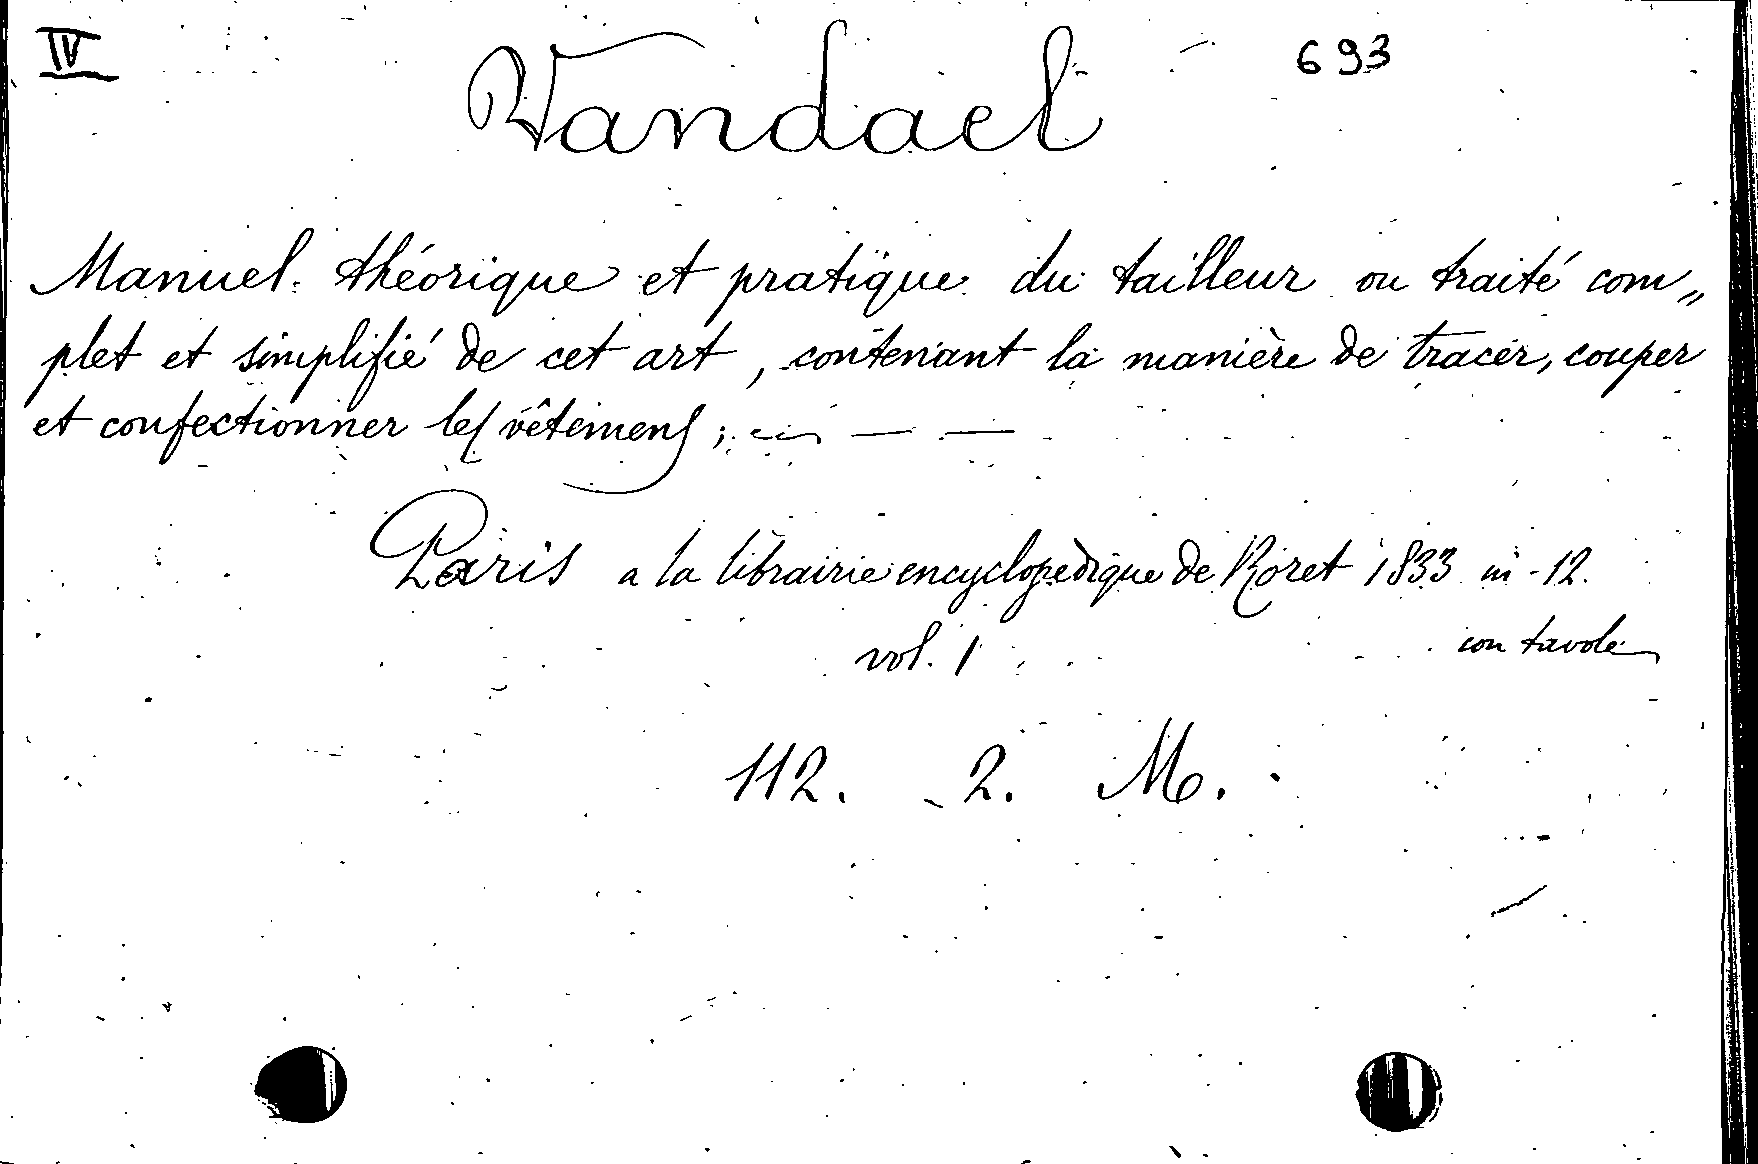 IV
693
Vandael
Manuel théorique et pratique du tailleur ou traité com„
plet et simplifié de cet art, contenant la manière de tracer, couper
et confectionner les vêtemens; — —
Paris a la librairie encyclopedique de Roret 1833 in-12.
vol. 1
con tavole
112. 2. M.